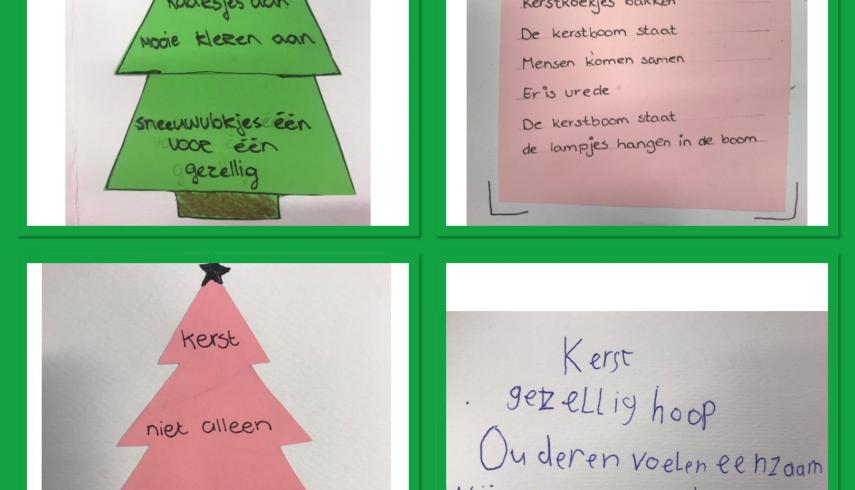 kadootjes aan
mooie kleren aan
sneeuwvlokjes één
voor één
gezellig
Kerstkoekjes bakken
De kerstboom staat
Mensen komen samen
Er is vrede
De kerstboom staat
de lampjes hangen in de boom
Kerst
niet alleen
Kerst
gezellig hoop
Ouderen voelen eenzaam